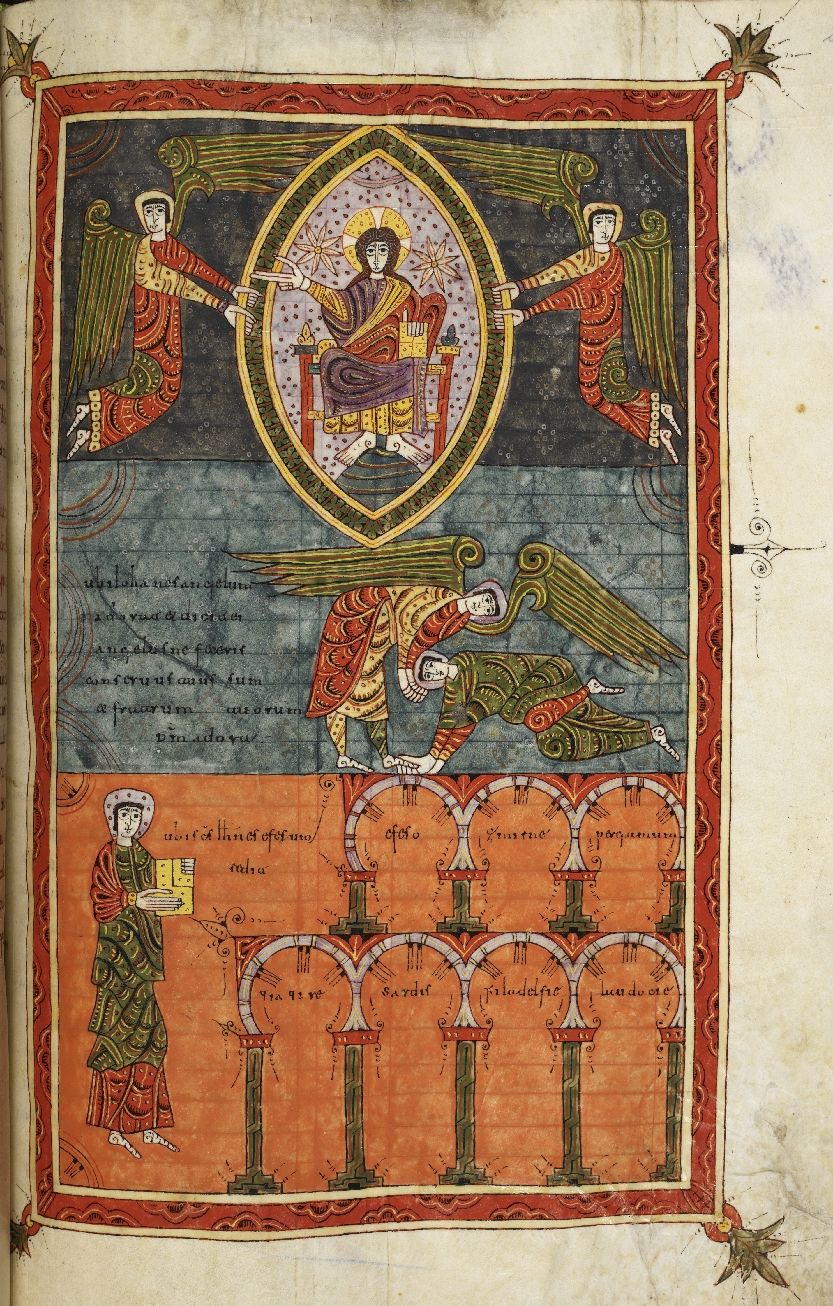 ubi iohanes angelum
adorad & dicid ei
angelus ne feceris
conseruus tuus sum
& fratrum tuorum
adora
ubi scs ihnes efesum
efeso zmirne pergamum
eclia
tiatire sardis filadelfie laudocie